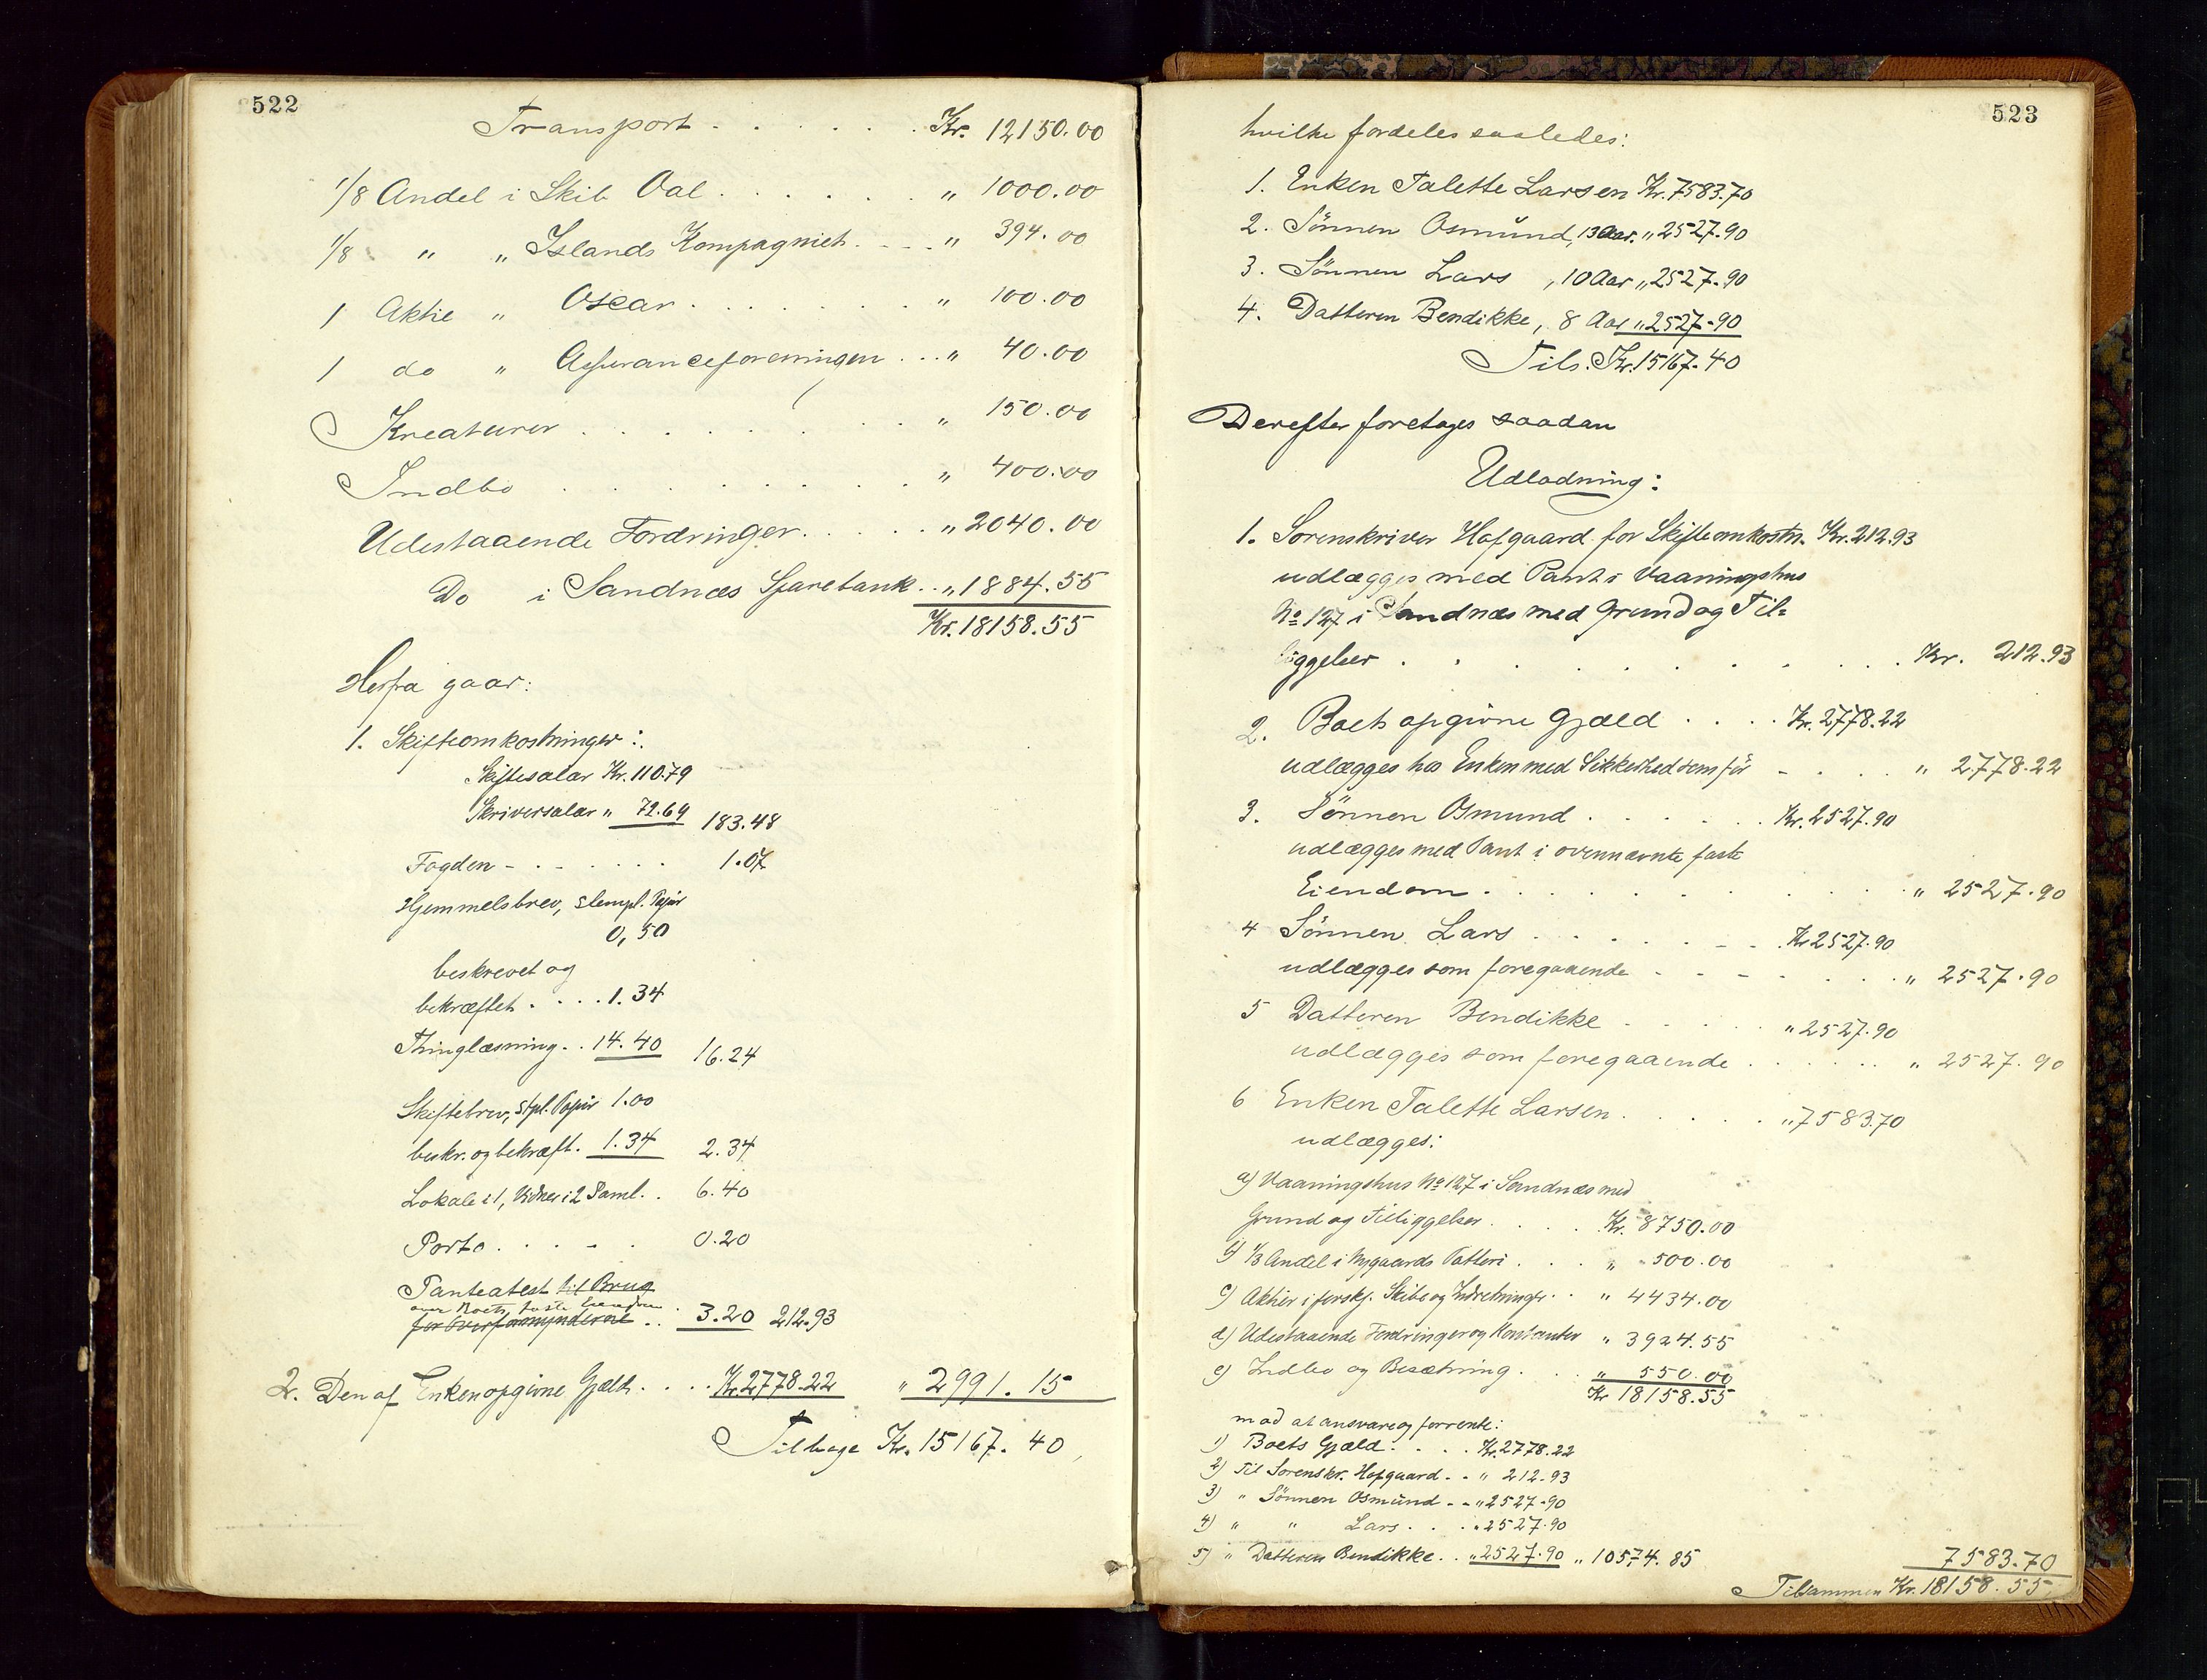 522
Transport . . . . . . Kr. 12150.00
1/8 Andel i Skib Val . . . . . „ 1000.00
1/8 „ „ Islands Kompagniet . - - - „ 394.00
1 Aktie „ Oscar . . . . . . „ 100.00
1 do „ Assuranceforeningen . . . „ 40.00
Kreaturer . . . . . . . „ 150.00
Indbo . . . . . . . „ 400.00
Udestaaende Fordringer . . . . „ 2040.00
Do i Sandnæs Sparebank . . „ 1884.55
Kr. 18158.55
Herfra gaar:
1. Skifteomkostninger:
Skiftesalar Kr. 110.79
Skriversalar „ 72.69 183.48
Fogden - . . . . . . 1.07
Hjemmelsbrev, stempl. Papir
0,50
beskrevet og
bekræftet . . . . 1.34
Thinglæsning . . 14.40 16.24
Skiftebrev, stpl. Papir 1.00
beskr. og bekræft. 1.34 2.34
Lokale i 1, Vidner i 2 Saml. . 6.40
Porto . . . . . 0.20
Panteatest til Brug
over Boets faste Eiendom
for Overformynderne . . 3.20 212.93
2. Den af Enken opgivne Gjæld . . . . Kr. 2778.22 „ 2991.15
Tilbage Kr. 15167.40,
523
hvilke fordeles saaledes:
1. Enken Talette Larsen Kr. 7583.70
2. Sönnen Osmund, 13 Aar. „ 2527.90
3. Sönnen Lars, 10 Aar „ 2527.90
4. Datteren Bendikke, 8 Aar „ 2527.90
Tils. Kr. 15167.40
Derefter foretages saadan
Udlodning:
1. Sorenskriver Hofgaard for Skifteomkostn. Kr. 212.93
udlægges med Pant i Vaaningshus
No 127 i Sandnæs med Grund og Til=
liggelser . . . . . . . . . . . Kr. 212.93
2. Boets opgivne Gjæld . . . . Kr. 2778.22
udlægges hos Enken med Sikkerhed som för - . . . „ 2778.22
3. Sönnen Osmund . . . . . . Kr. 2527.90
udlægges med Pant i ovennævnte faste
Eiendom . . . . . . . . . . „ 2527.90
4 Sönnen Lars . . . . . . - - . Kr 2527.90
udlægges som foregaaende - - - . . . . „ 2527.90
5 Datteren Bendikke . . . . . „ 2527.90
udlægges som foregaaende . . . . . . „ 2527.90
6 Enken Talette Larsen . . . . . „ 7583.70
udlægges:
a) Vaaningshus No 127 i Sandnæs med
Grund og Tilliggelser . . . . Kr. 8750.00
b) 1/3 Andel i Nygaards Potteri . . . „ 500.00
c) Aktier i forskj. Skibe og Indretninger . . „ 4434.00
d) Udestaaende Fordringer og Kontanter „ 3924.55
e) Indbo og Besætning . . . „ 550.00
Kr 18158.55
mod at ansvare og forrente:
1) Boets Gjæld . . . . Kr. 2778.22
2) Til Sorenskr. Hofgaard . . „ 212.93
3) „ Sönnen Osmund . - „ 2527.90
4) „ „ Lars . . . „ 2527.90
5) „ Datteren Bendikke . . „ 2527.90 „ 10574.85 7583.70
Tilsammen Kr. 18158.55,